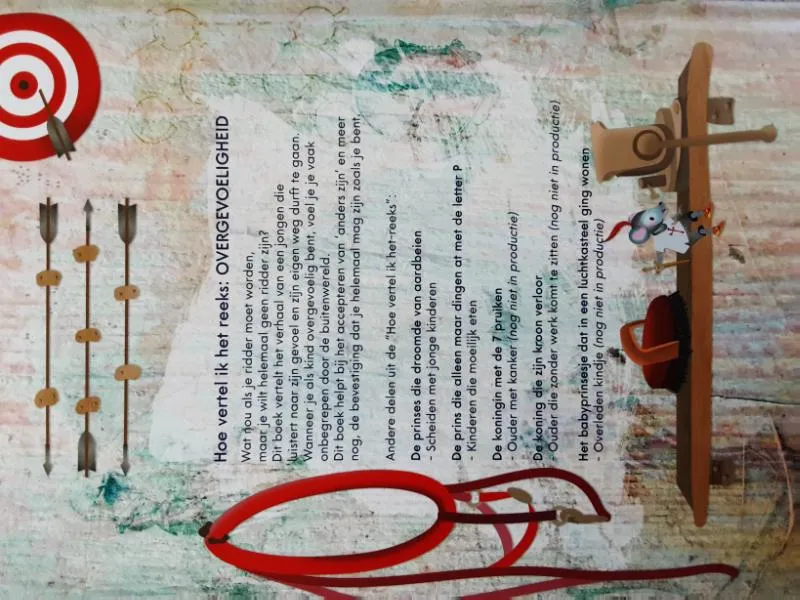 Hoe vertel ik het reeks: OVERGEVOELIGHEID
Wat nou als je ridder moet worden,
maar je wilt helemaal geen ridder zijn?
Dit boek vertelt het verhaal van een jongen die
luistert naar zijn gevoel en zijn eigen weg durft te gaan.
Wanneer je als kind overgevoelig bent, voel je je vaak
onbegrepen door de buitenwereld.
Dit boek helpt bij het accepteren van 'anders zijn' en meer
nog, de bevestiging dat je helemaal mag zijn zoals je bent.
Andere delen uit de "Hoe vertel ik het-reeks":
De prinses die droomde van aardbeien
- Scheiden met jonge kinderen
De prins die alleen maar dingen at met de letter P
- Kinderen die moeilijk eten
De koningin met de 7 pruiken
- Ouder met kanker (nog niet in productie)
De koning die zijn kroon verloor
- Ouder die zonder werk komt te zitten (nog niet in productie)
Het babyprinsesje dat in een luchtkasteel ging wonen
- Overleden kindje (nog niet in productie)